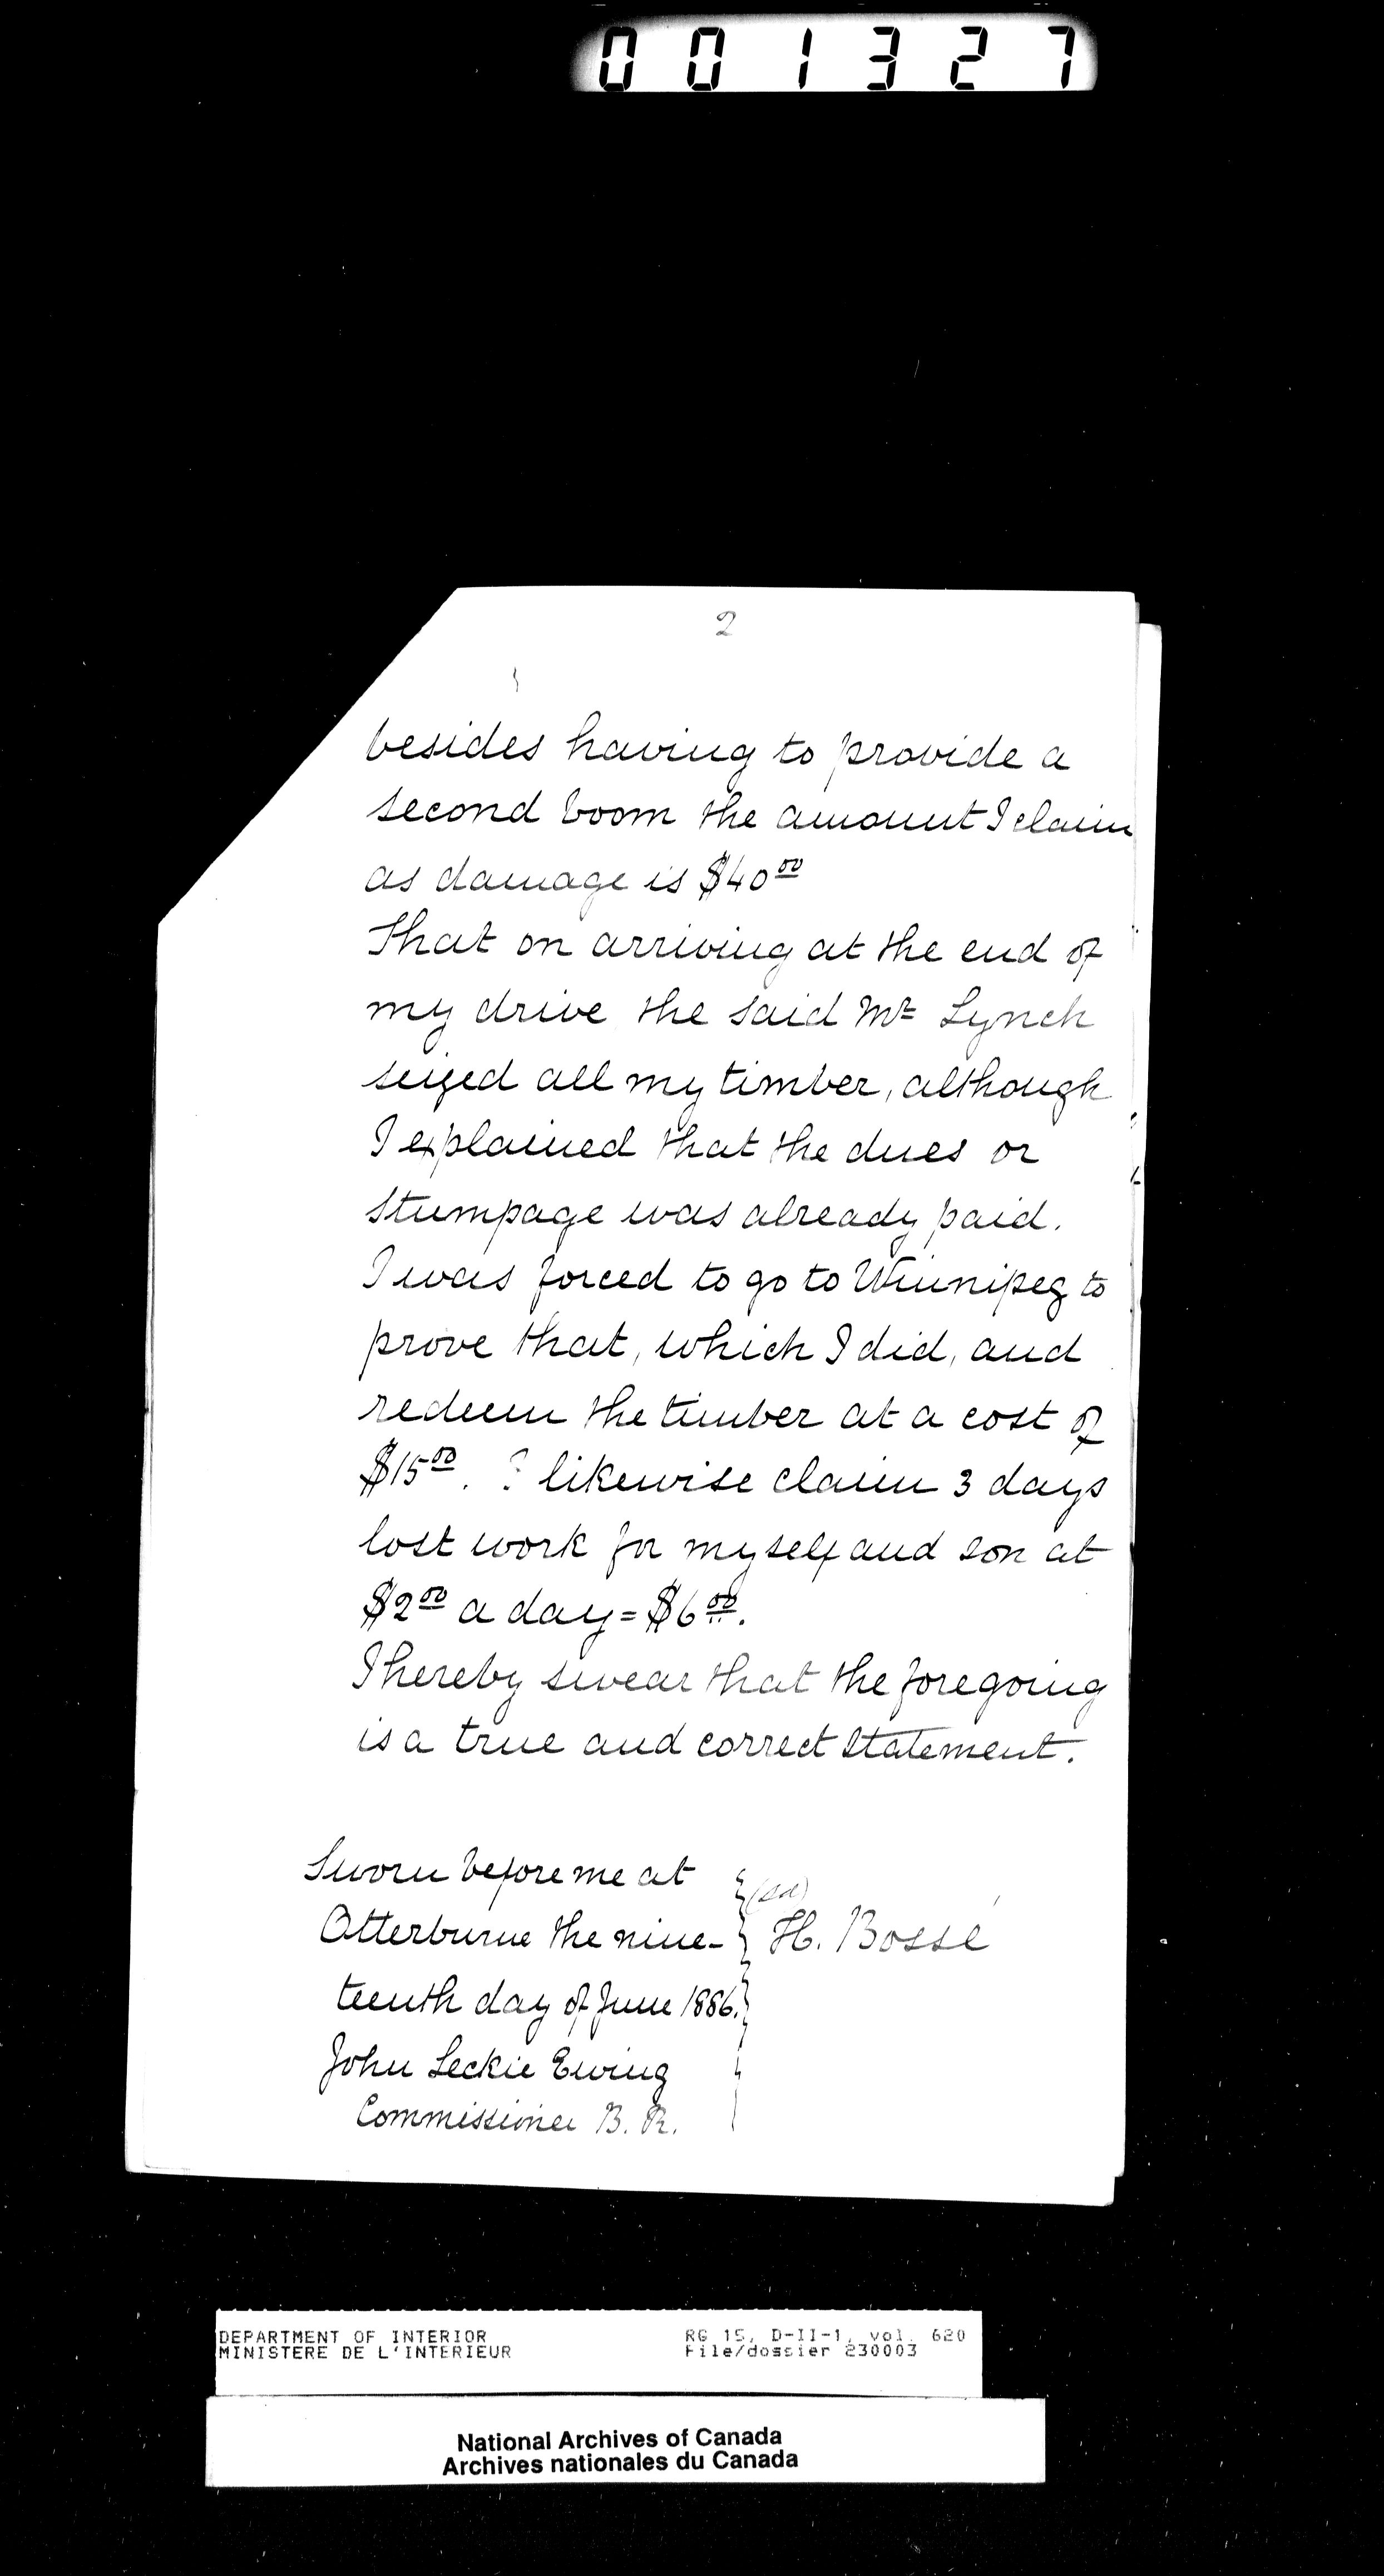 001327
2
besides having to provide a
second boom the amount I claim
as damage is $40 00
That on arriving at the end of
my drive the said Mr Lynch
seized all my timber, although
I explained that the dues or
stumpage was already paid.
I was forced to go to Winnipeg to
prove that, which I did, and
redeem the timber at a cost of
$15 00. I likewise claim 3 days
lost work for myself and son at
$2 00 a day = $6 00.
I hereby swear that the foregoing
is a true and correct statement.
Sworn before me at
(sd)
Otterburne the nine- H. Bossé
teenth day of June 1886.
John Leckie Ewing
Commissioner B. R.
DEPARTMENT OF INTERIOR RG 15, D-II-1, vol. 620
MINISTERE DE L'INTERIEUR File/dossier 230003
National Archives of Canada
Archives nationales du Canada